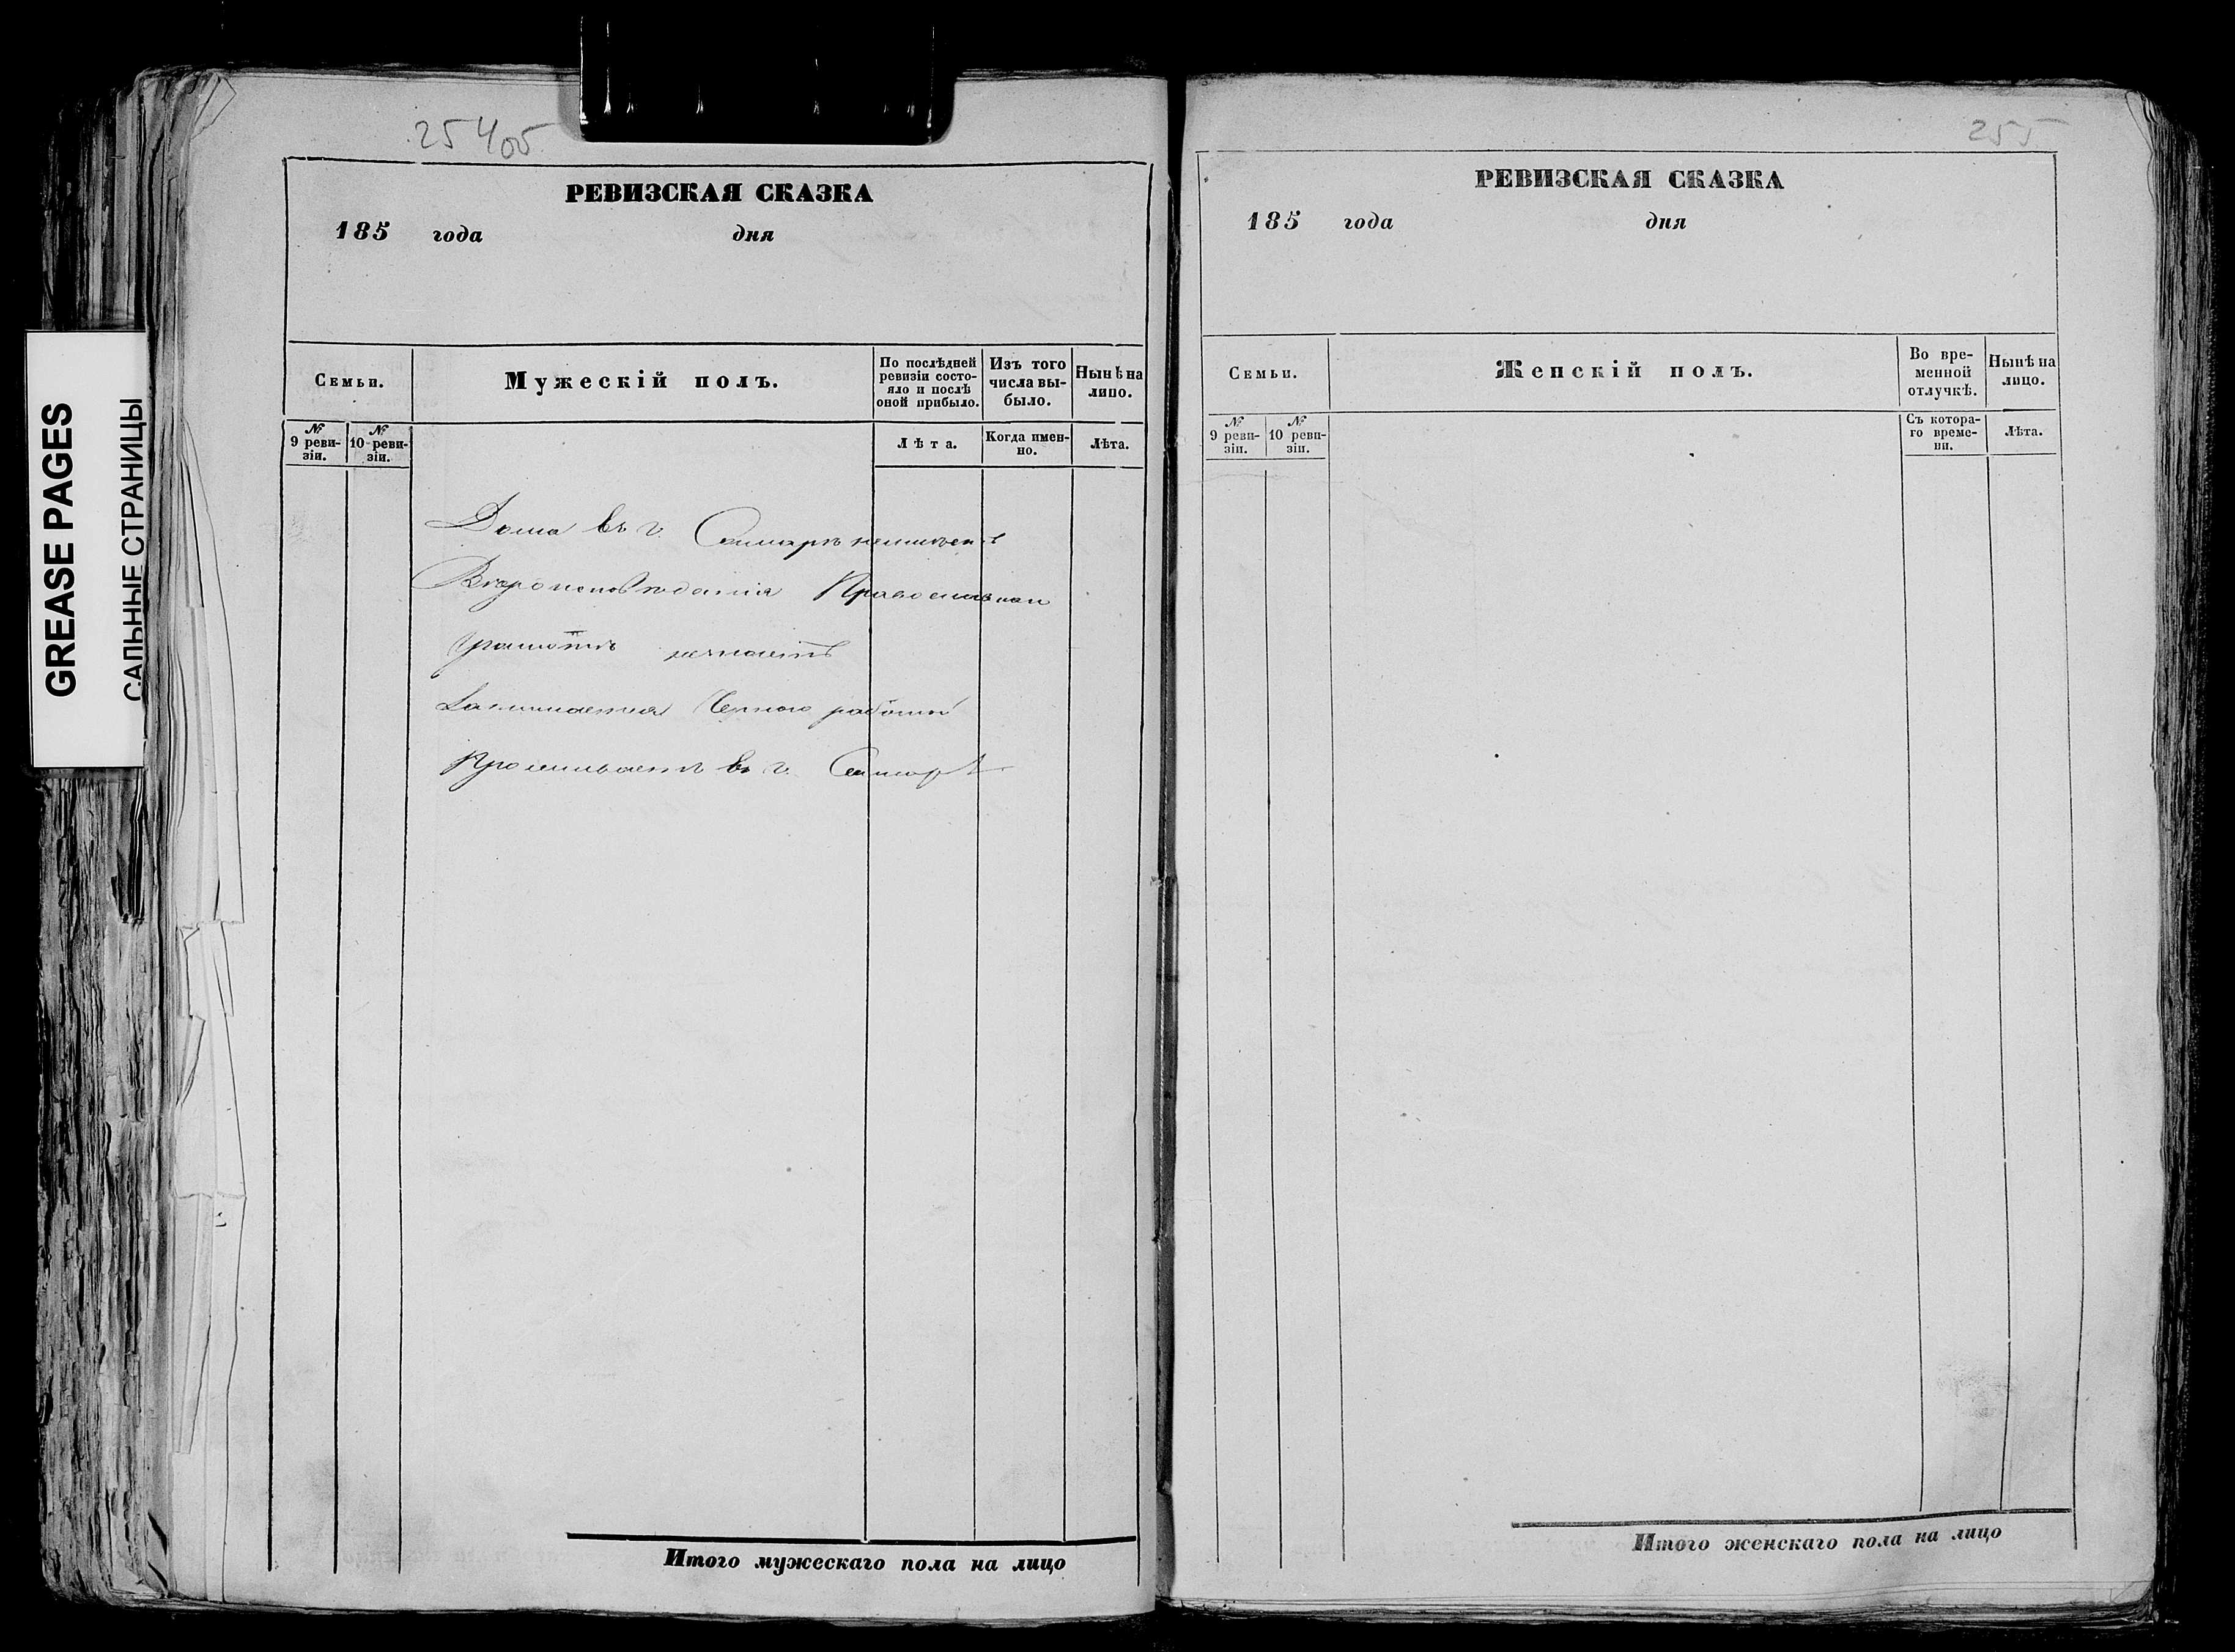 GREASE PAGES
САЛЬНЫЕ СТРАНИЦЫ
254об
РЕВИЗСКАЯ СКАЗКА
185 года дня
Семьи.
Мужескій полъ.
По послѣдней ревизіи состо-
яло и послѣ оной прибыло.
Изъ того числа вы-
было.
Нынѣ на лицо.
№ 9 реви-
зіи.
№ 10 реви-
зіи.
Лѣта.
Когда имен-
но.
Лѣта.
Дома въ г. Самарѣ неимѣетъ
Вѣроисповѣданія Православнаго
Грамотѣ незнаетъ
Занимается Черною работой
Проживаетъ въ г. Самарѣ
Итого мужескаго пола на лицо
255
РЕВИЗСКАЯ СКАЗКА
185 года дня
Семьи.
Женскій полъ.
Во вре-
менной
отлучкѣ.
Нынѣ на
лицо.
№ 9 реви-
зіи.
№ 10 реви-
зіи.
Съ котора-
го време-
ни.
Лѣта.
Итого женскаго пола на лицо